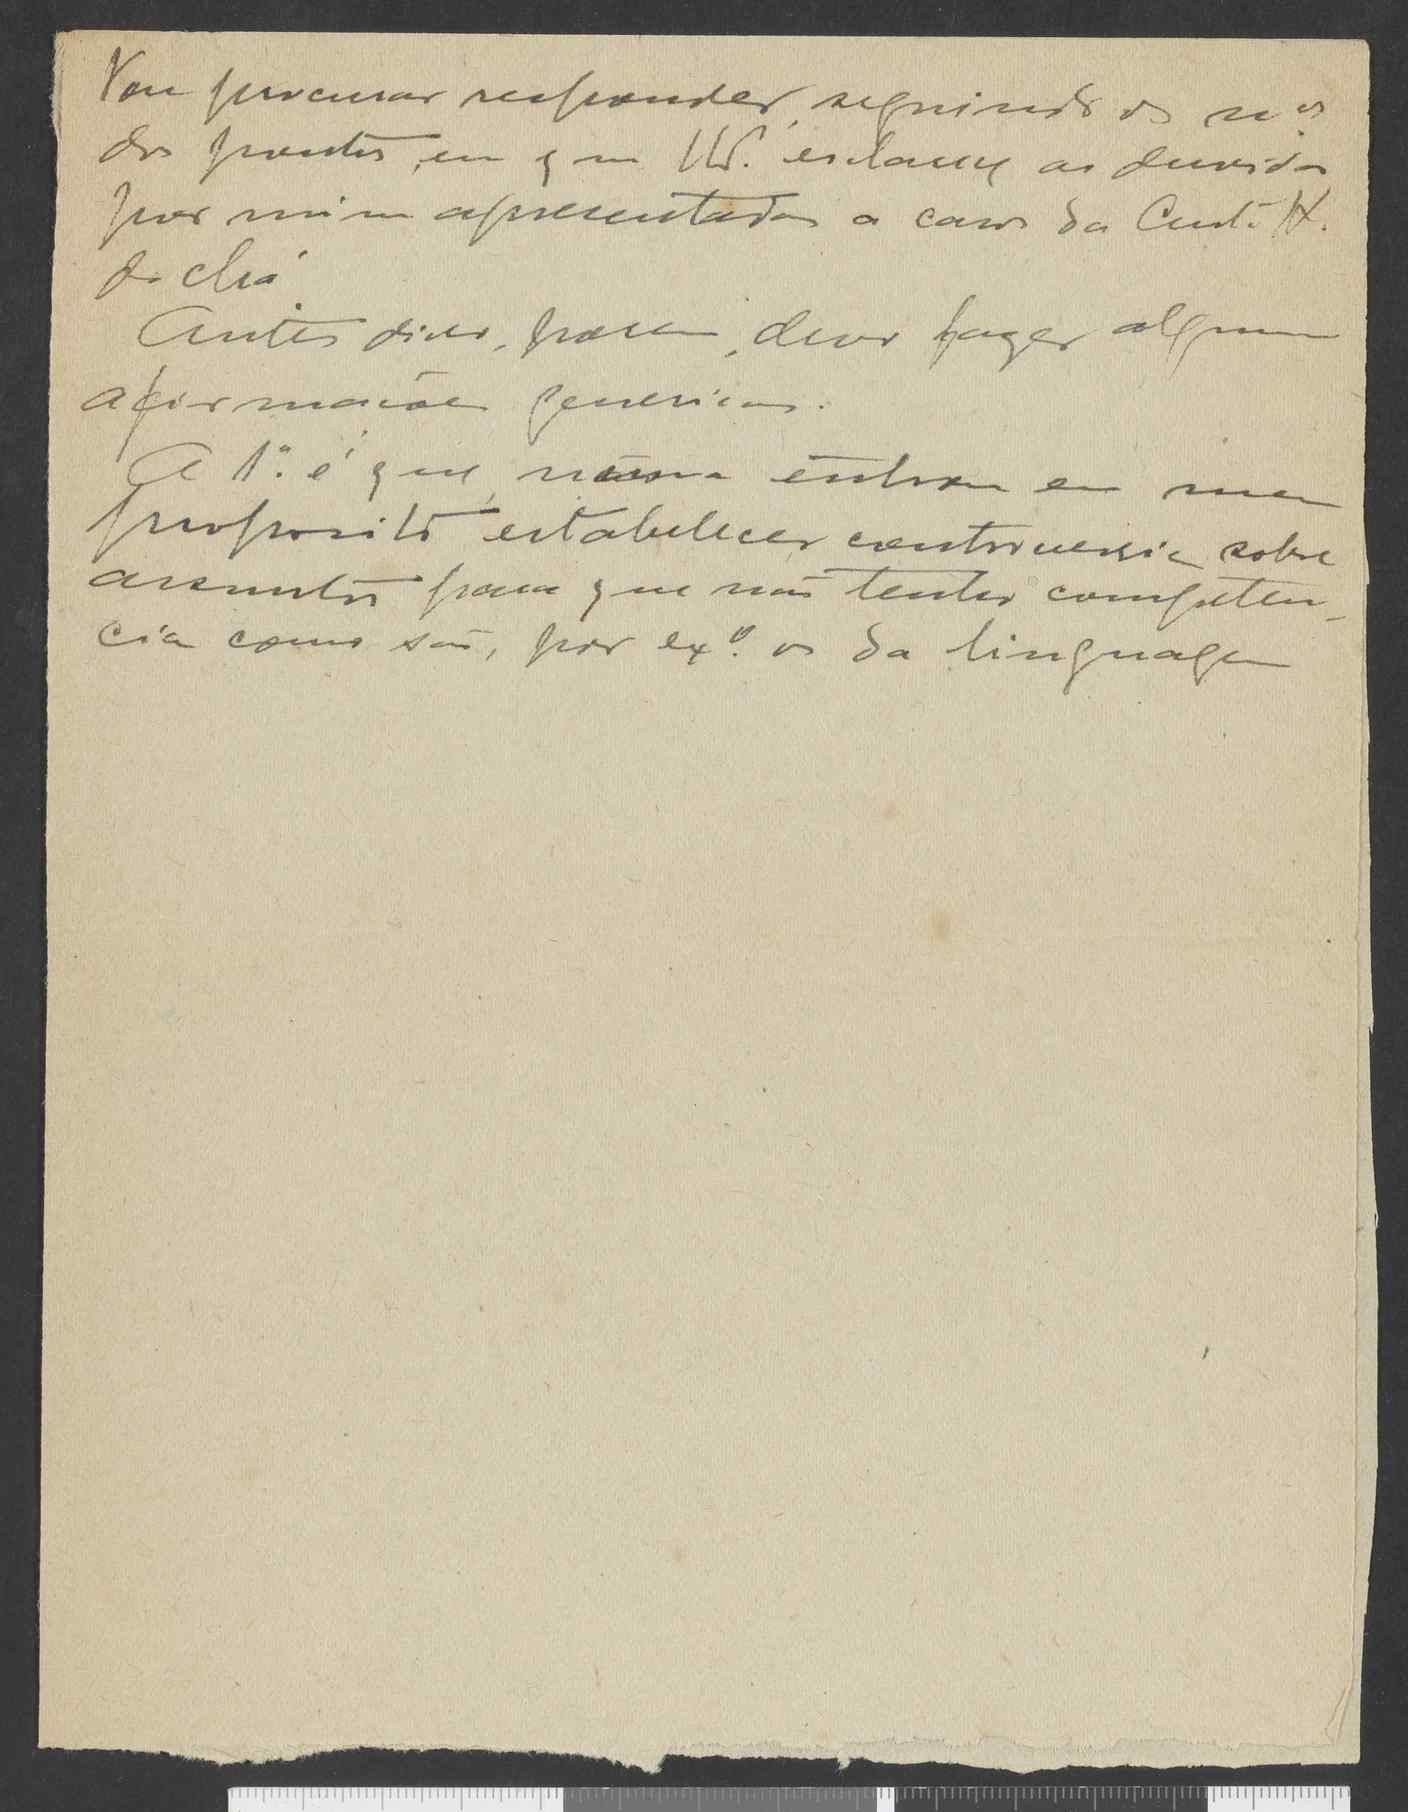 Vou procurar responder, seguindo os nos
dos pontos, em q m V. esclarece as duvidas
por mim apresentadas a casos da Cust. H.
do chá.
Antes disso, porem, devo fazer algumas
afirmacões genericas.
A 1ª. é que, nunca entrou em meu
proposito estabelecer controversia sobre
assuntos para que não tenho competen-
cia como são, por exº. os da linguagem